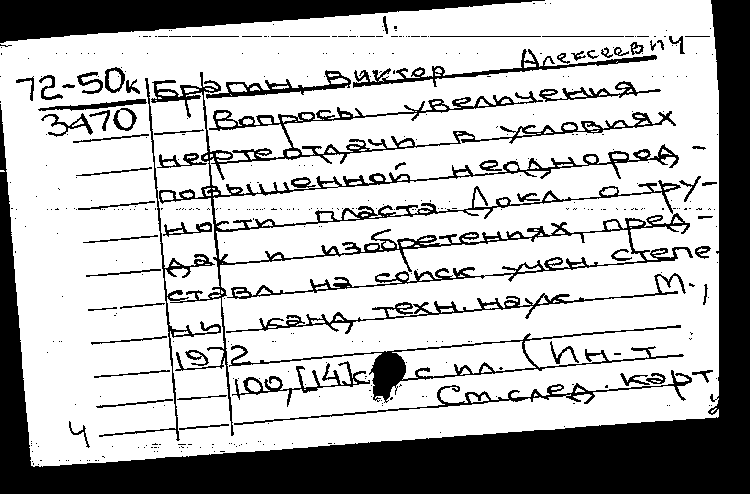 1.
72-50к Брагин, Виктор Алексеевич
3470 Вопросы увеличения
нефтеотдачи в условиях
повышенной неоднород-
ности пласта Докл. о тру-
дах и изобретениях, пред-
ставл. на соиск. учен. степе-
нь канд. техн. наук. М.,
1972.
100, [14] с с ил. (Ин-т
См. след. карт.
ч